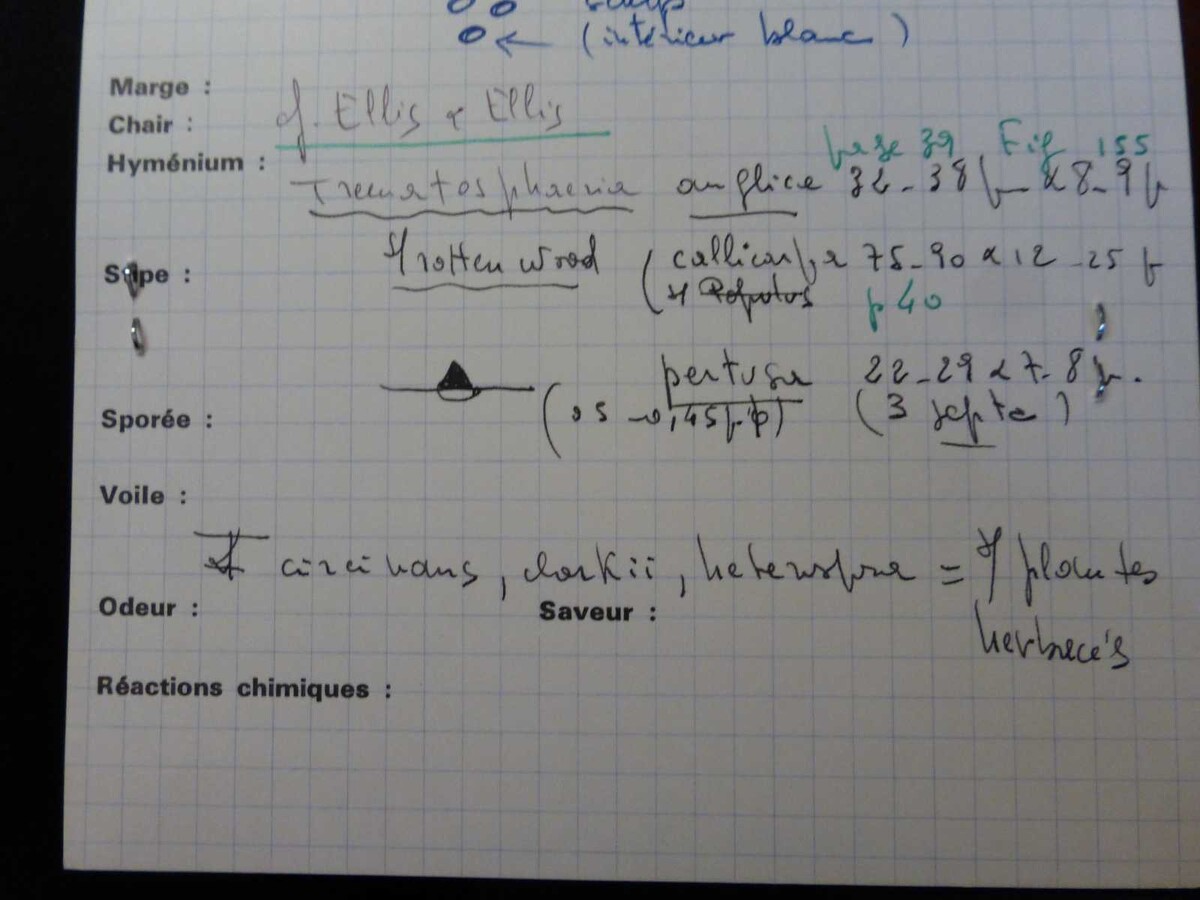 (intérieur blanc)
Marge :
Chair : cf. Ellis & Ellis
Hyménium : page 39 Fig 155
Trematosphaeria anglica 32-38 µ x 8-9 µ
Stipe : rotten wood (callicarpa 75-90 x 12-25 µ
p 40
pertusa 22-29 x 7-8 µ.
Sporée : (3 septa)
Voile :
circinans, clarkii, heterospora = plantes
Odeur : Saveur :
herbacés
Réactions chimiques :